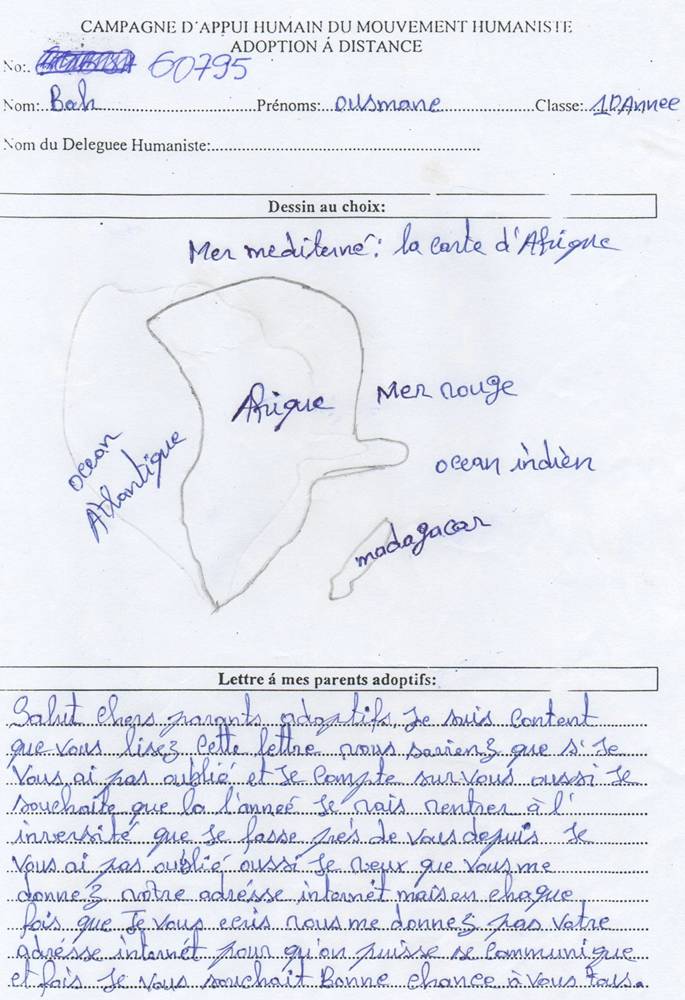 CAMPAGNE D'APPUI HUMAIN DU MOUVEMENT HUMANISTE
ADOPTION Á DISTANCE
No:. 60795
Nom: Bah Prénoms: ousmane Classe: 10Annee
Nom du Deleguee Humaniste:
Dessin au choix:
Mer mediterné: la carte d'Afrique
Afrique
Mer rouge
ocean
Atlantique
ocean indièn
madagacar
Lettre á mes parents adoptifs:
Salut chers parents adoptifs Je suis content
que vous lisez cette lettre vous saviez que s' Je
vous ai pas oublié et Je compte sur vous aussi Je
souchaite que la l'anneé Je vais rentrer à l'
inversité que Je fasse près de vous depuis Je
vous ai pas oublié aussi Je veux que vous me
donnez votre adrésse internét mais en chaque
fois que Je vous ecris vous me donnez pas votre
adrésse internét pour qu'on puisse se communique
et fois Je vous souchait Bonne chance à vous tous.